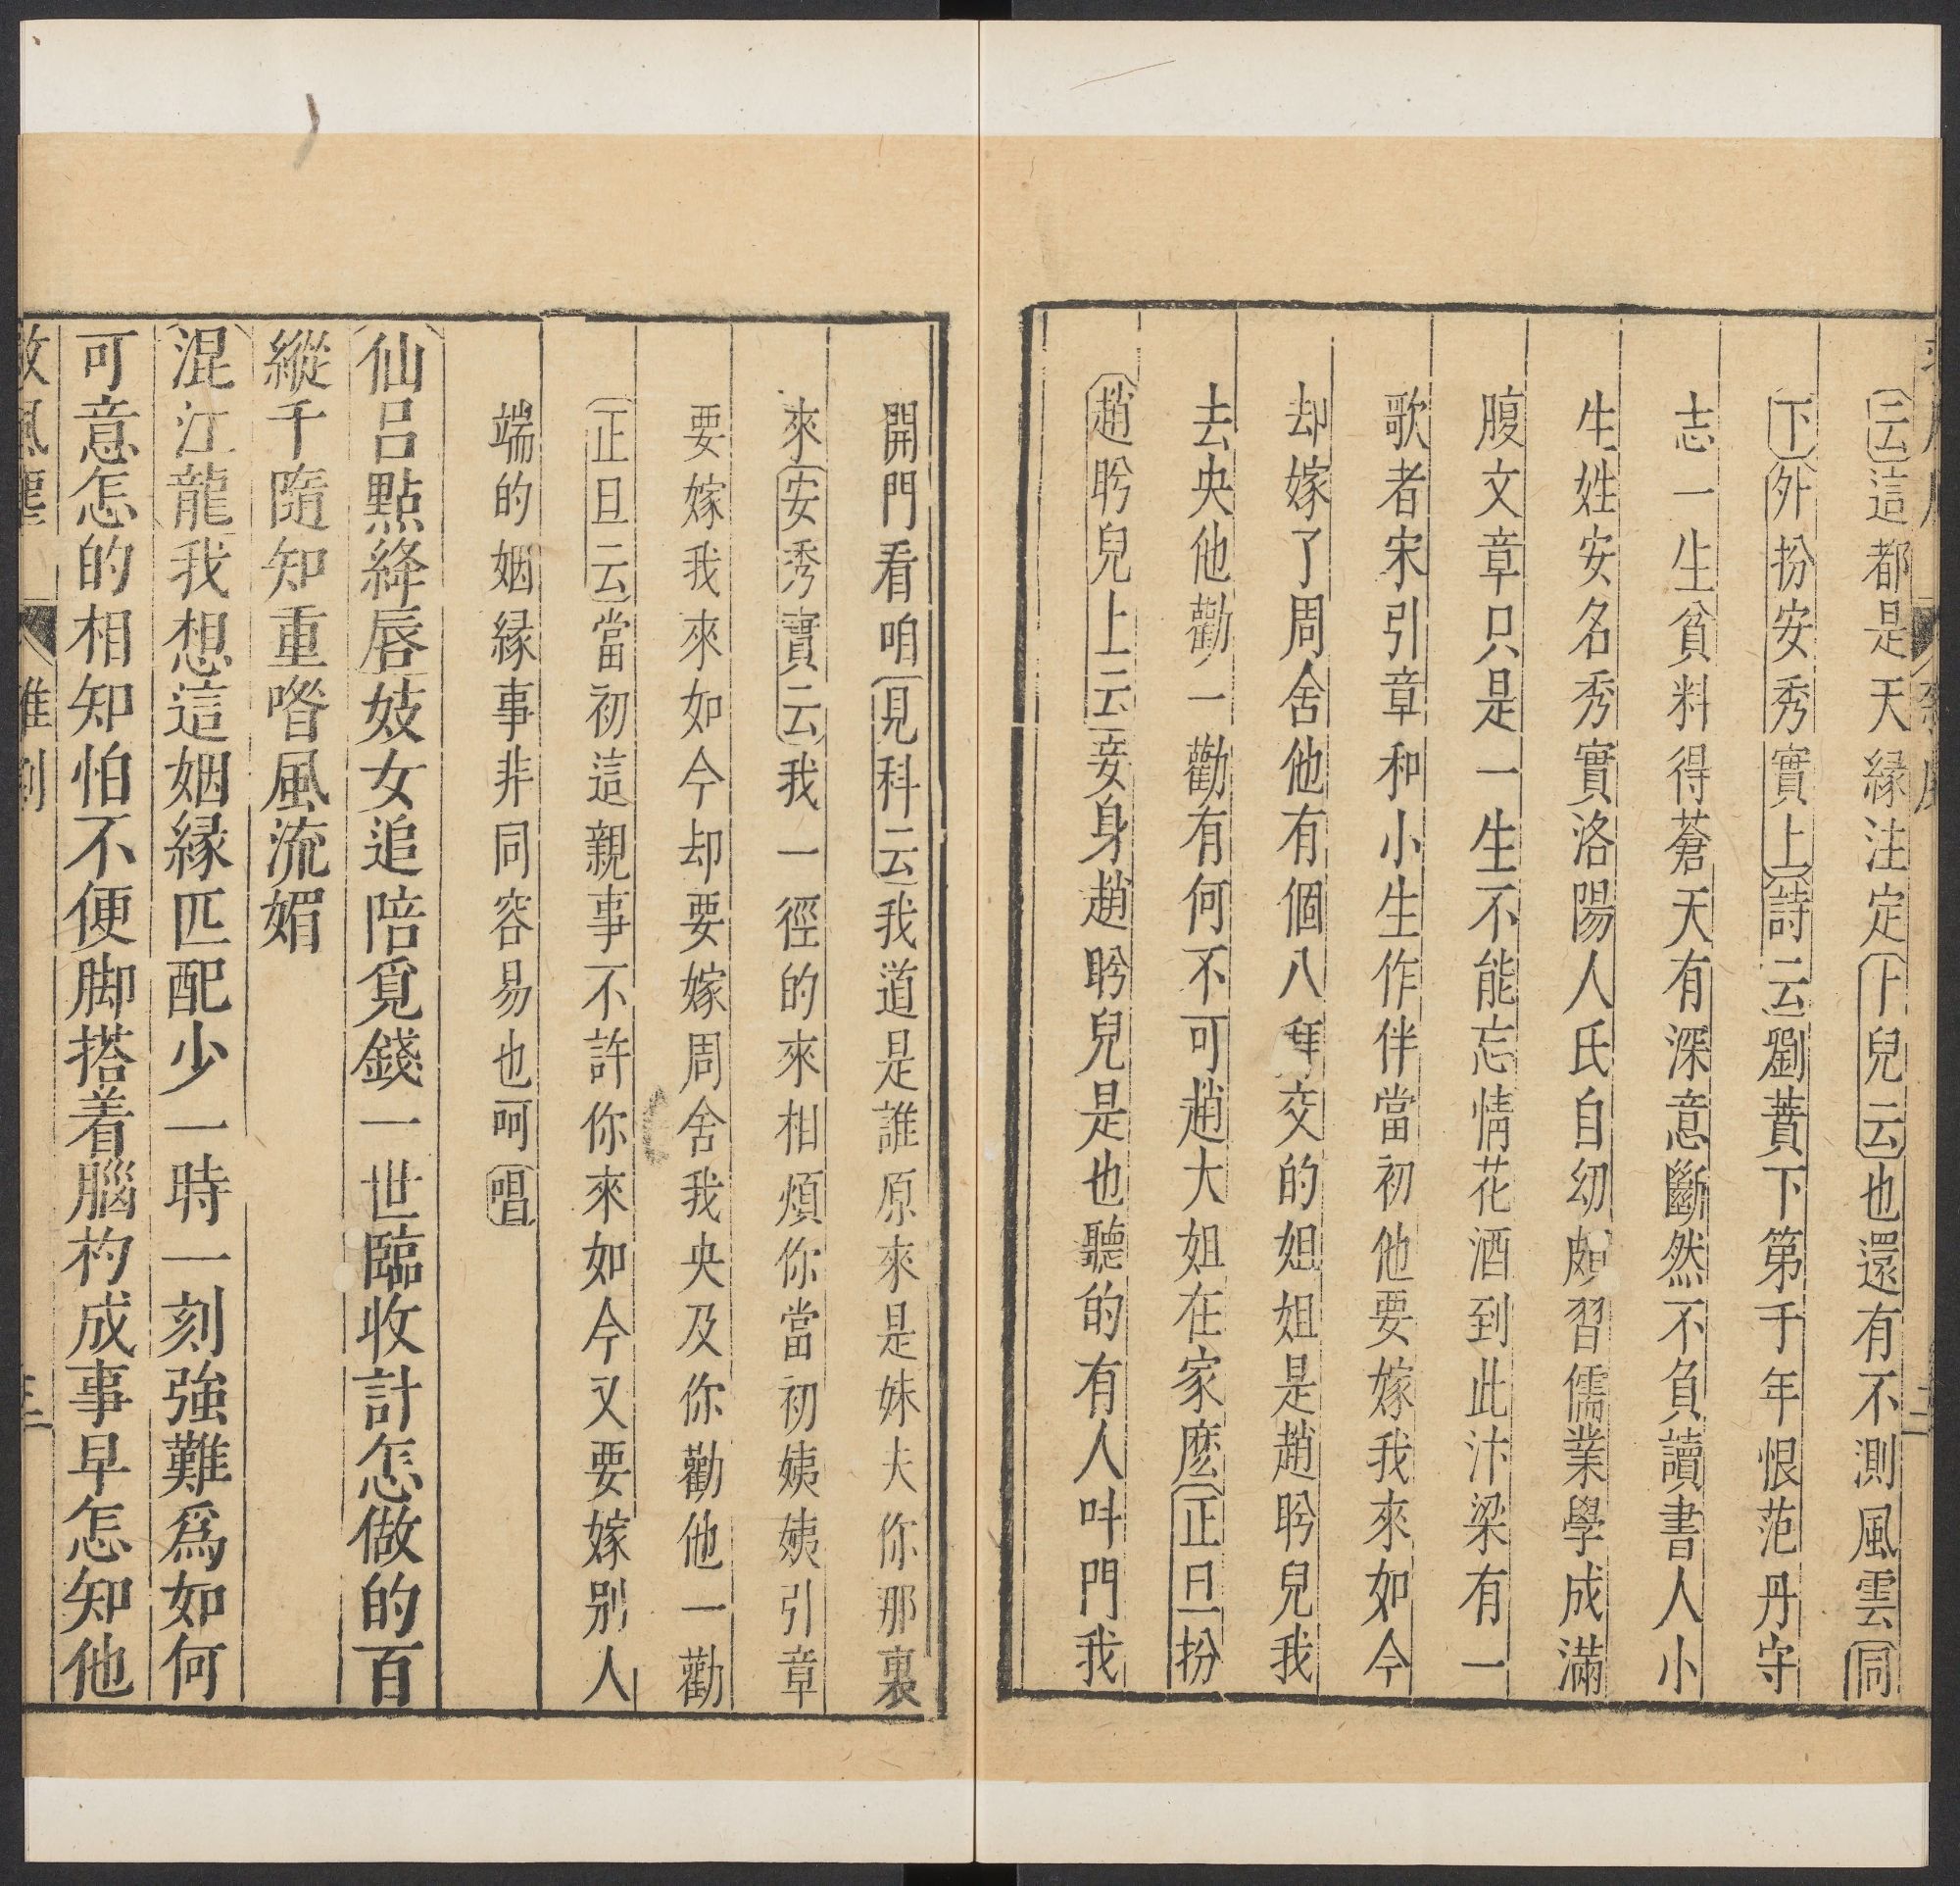 云這都是天緣注定卜兒云也還有不測風雲同
下外扮安秀實上詩云劉蕡下第千年恨范丹守
志一生貧料得蒼天有深意斷然不負讀書人小
生姓安名秀實洛陽人氏自幼頗習儒業學成滿
腹文章只是一生不能忘情花酒到此汴梁有一
歌者宋引章和小生作伴當初他要嫁我來如今
却嫁了周舍他有個八拜交的姐姐是趙盼兒我
去央他勸一勸有何不可趙大姐在家麽正旦扮
趙盼兒上云妾身趙盼兒是也聽的有人呌門我
開門看咱見科云我道是誰原來是妹夫你那裏
來安秀實云我一徑的來相煩你當初姨姨引章
要嫁我來如今却要嫁周舍我央及你勸他一勸
正旦云當初這親事不許你來如今又要嫁別人
端的姻緣事非同容易也呵唱
仙呂點絳唇妓女追陪覓錢一世臨收計怎做的百
縱千隨知重喒風流媚
混江龍我想這姻緣匹配少一時一刻強難爲如何
可意怎的相知怕不便脚搭着腦杓成事早怎知他
救風塵 雜劇 三